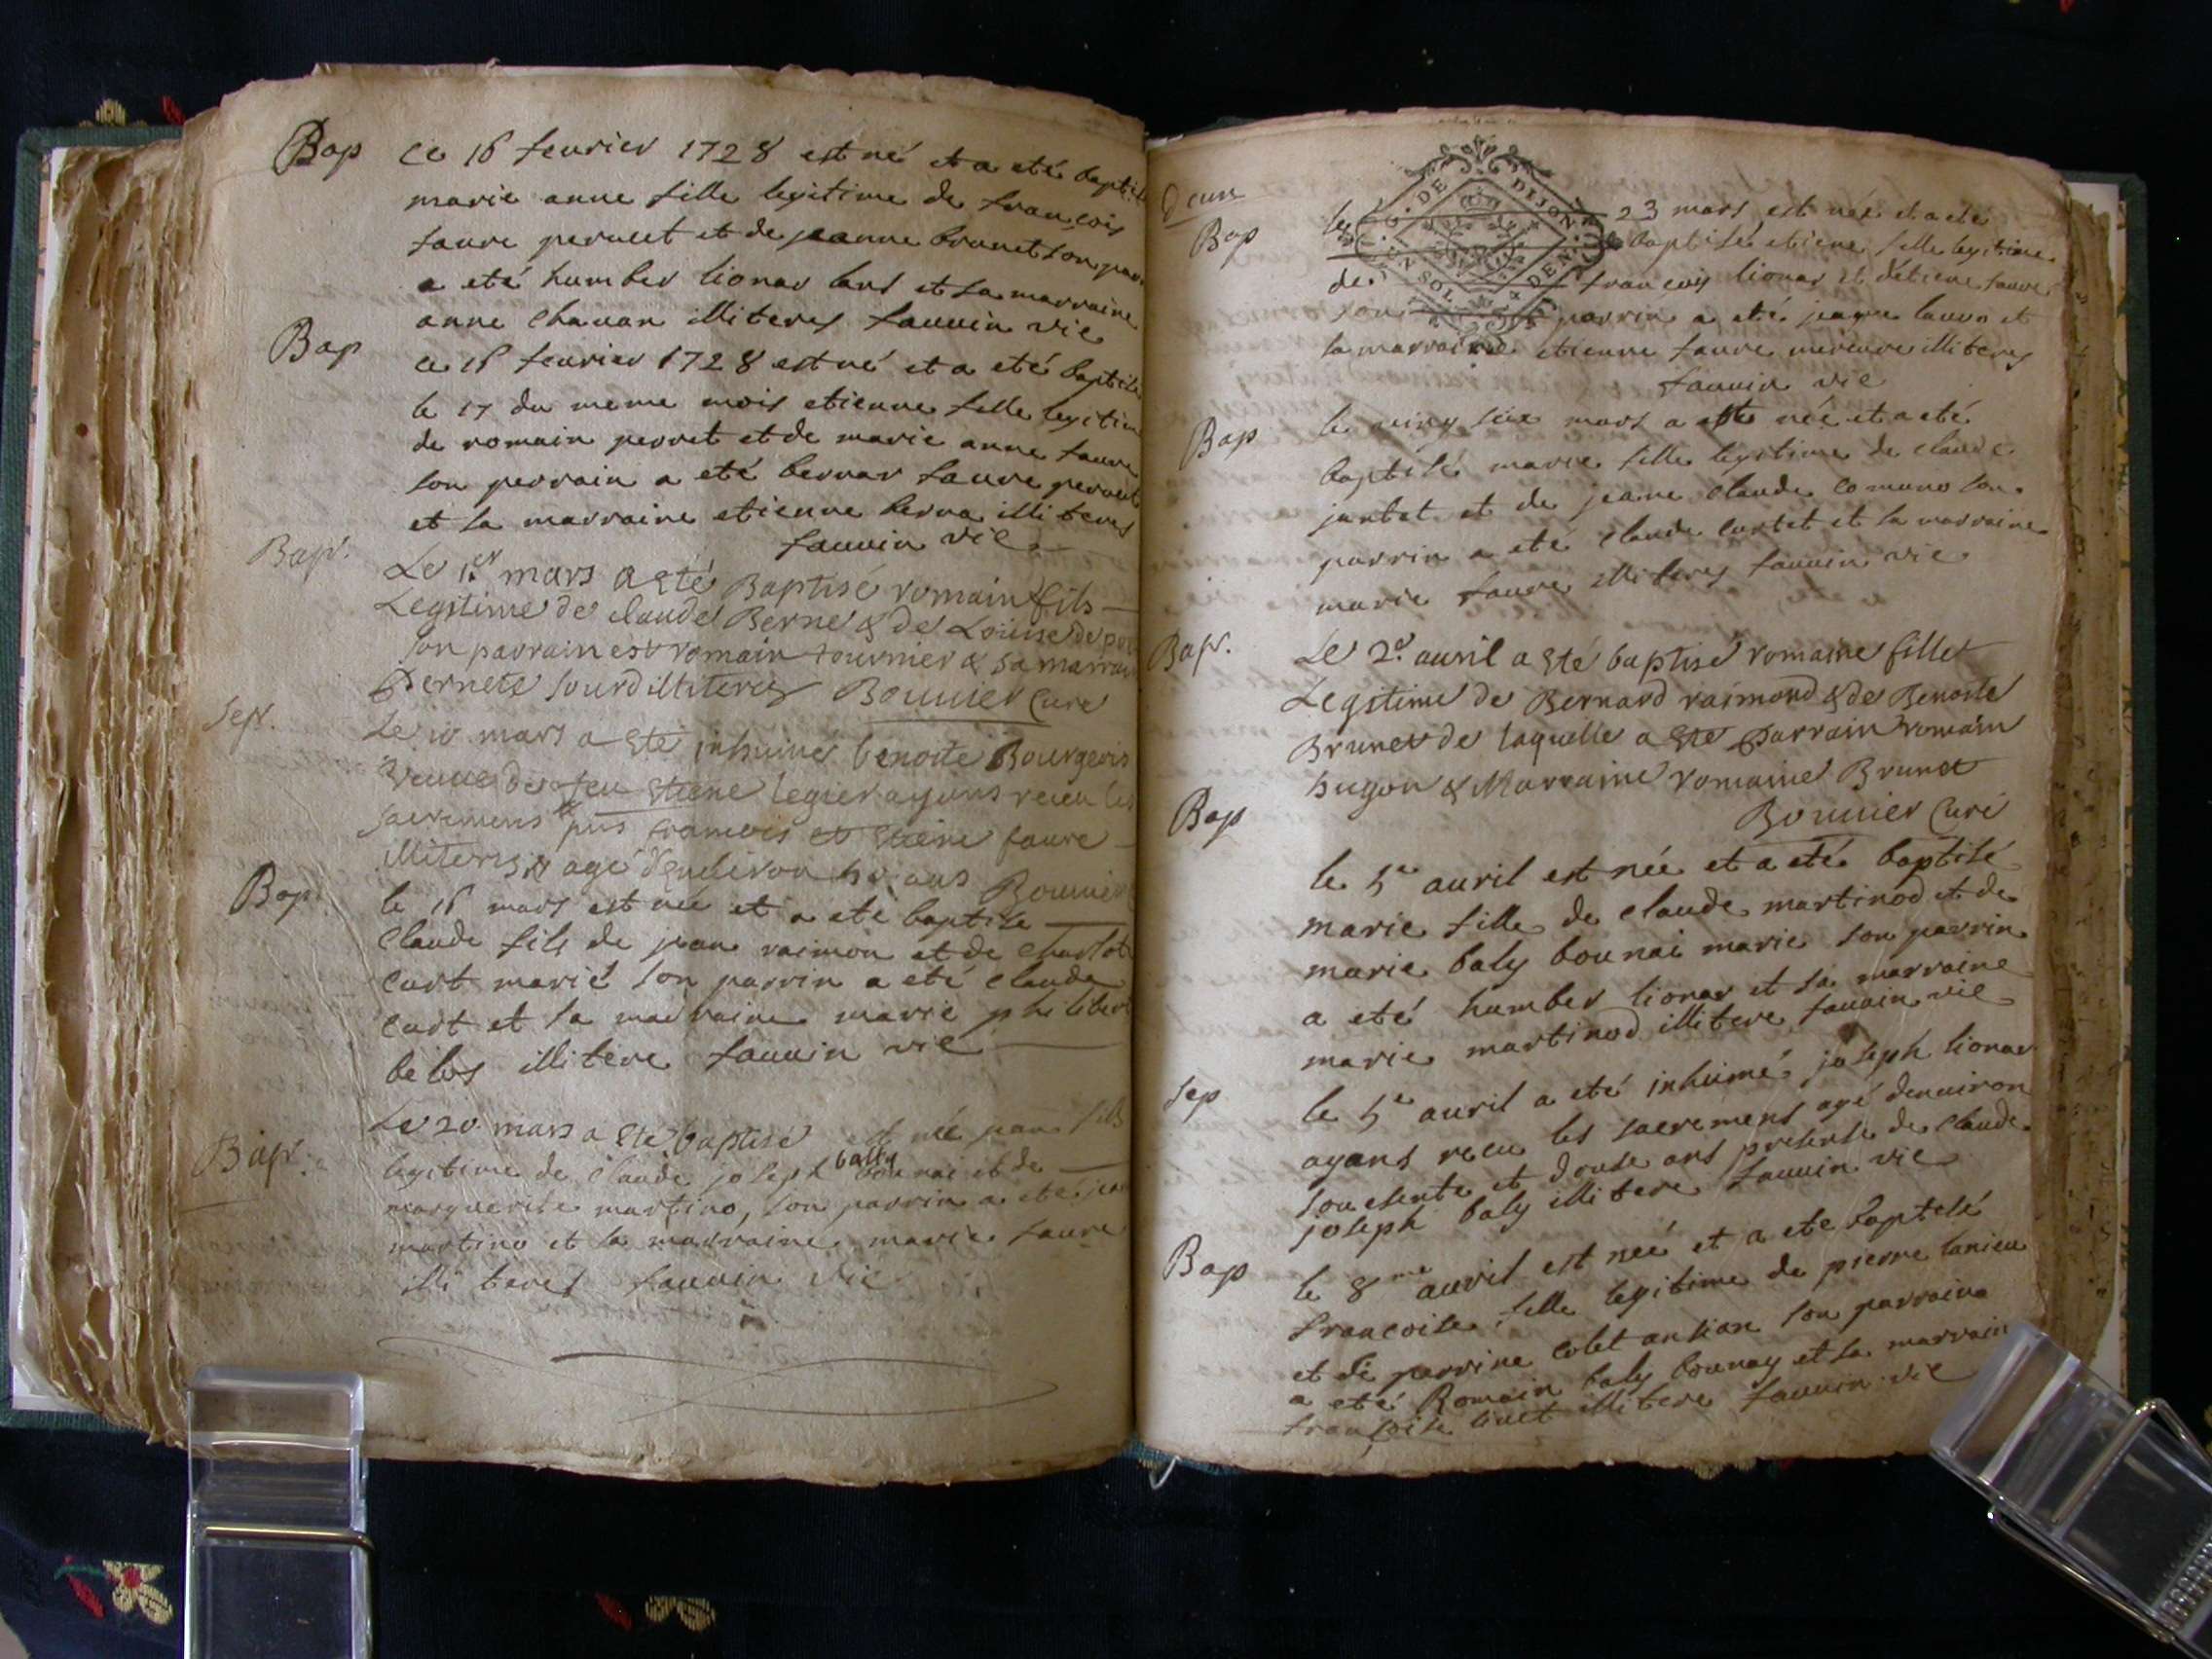 Bap ce 16 feurier 1728 est né et a eté baptisé
marie anne fille legitime de françois
faure peruset et de jeanne brunet son par
a eté humber lionar lars et sa marraine
anne chauan illiteres fauuin vic
Bap ce 16 feurier 1728 est né et a eté baptisé
le 17 du meme mois etienne fille legitime
de romain perret et de marie anne faure
son perrain a eté bernar faure peruset
et sa marraine etienne berna illiteres
fauuin vic
Bapt. Le 1er mars a Eté Baptisé romain fils
Legitime de claude Berne & de Loüise de
son parrain est romain tournier & sa marraine
Pernete sourd illiteres Bouuier Curé
Sept. Le 10 mars a Eté inhumé benoite Bourgeois
veuue de feu Etiene legier ayant receu les
sacremens pns francois et Etiene faure
illiteres agé d'enuiron ans Bouuier
Bap le 16 mars est né et a eté baptisé
claude fils de jean raimon et de charlot
cart marié son parrin a eté claude
cart et sa marraine marie philibert
belus illitere fauuin vic
Bapt. Le 20 mars a Eté baptisé est né jean fils
legitime de claude joseph bally bounai et de
marguerite martino, son parrin a eté jean
martino et la marraine marie faure
illiteres fauuin vic
G. DE DIJON
DEN
Bap le 23 mars est née et a eté
baptisé etiene fille legitime
de françois lionar et d'etiene faure
son parrin a eté jeanne lauon et
la marraine etienne faure mercure illiteres
fauuin vic
Bap le uing six mars a esté née et a eté
baptisé marie fille legitime de claude
jantet et de jeanne claude comuno son
parrin a eté claude cartet et sa marraine
marie faure illiteres fauuin vic
Bapt. Le 2d auril a Eté baptisé romaine fille
Legitime de Bernard raimond & de Benoite
Brunet de laquelle a Eté Parrain romain
hugon & Marraine romaine Brunet
Bouuier Curé
Bap le 5e auril est née et a eté baptisé
marie fille de claude martinod et de
marie baly bounai marie son parrin
a eté humber lionar et sa marraine
marie martinod illitere fauuin vic
Sep le 5e auril a eté inhumé joseph lionar
ayant reçu les sacremens agé denuiron
souesente et douse ans presente de claude
joseph baly illitere fauuin vic
Bap le 8me auril est née et a eté baptisé
françoise fille legitime de pierre lanieu
et de perrine colet ansian son parraina
a eté Romain baly bounay et sa marrain
françoise illitere fauuin vic